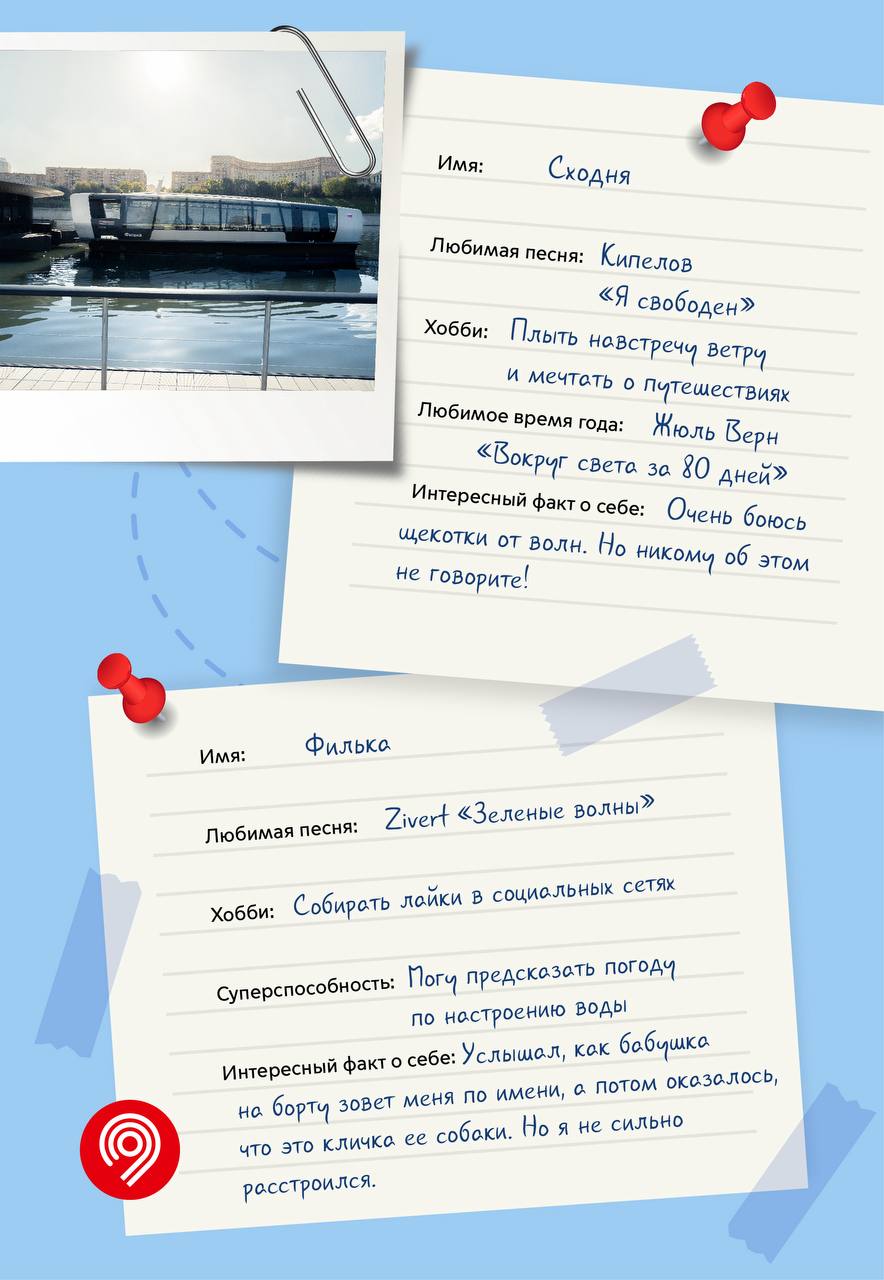 Имя: Сходня
Любимая песня: Кипелов
«Я свободен»
Хобби: Плыть навстречу ветру
и мечтать о путешествиях
Любимое время года: Жюль Верн
«Вокруг света за 80 дней»
Интересный факт о себе: Очень боюсь
щекотки от волн. Но никому об этом
не говорите!
Имя: Филька
Любимая песня: Zivert «Зеленые волны»
Хобби: Собирать лайки в социальных сетях
Суперспособность: Могу предсказать погоду
по настроению воды
Интересный факт о себе: Услышал, как бабушка
на борту зовет меня по имени, а потом оказалось,
что это кличка ее собаки. Но я не сильно
расстроился.